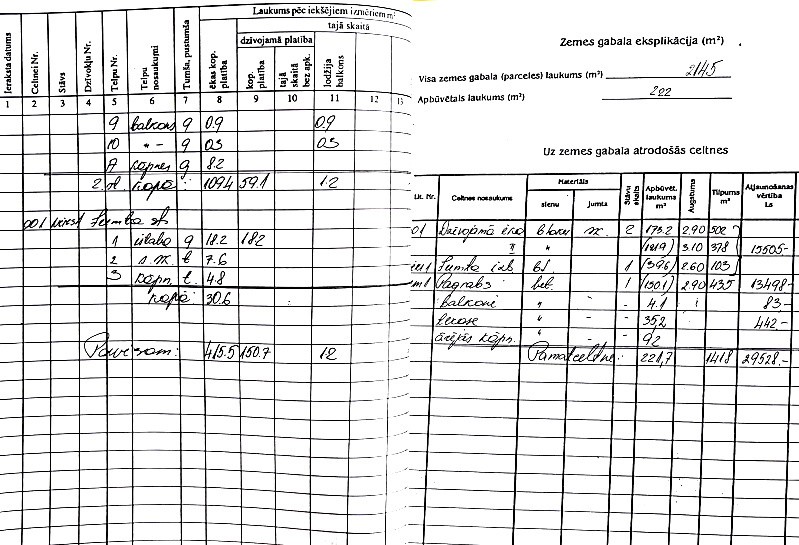 Laukums pēc iekšējiem izmēriem m²
tajā skaitā
dzīvojamā platība
Ieraksta datums
Celtnei Nr.
Stāvs
Dzīvokļu Nr.
Telpu Nr.
Telpu nosaukumi
Tumša, pustumša
ēkas kop. platība
kop. platība
tajā skaitā bez apk.
lodžija balkons
1 2 3 4 5 6 7 8 9 10 11 12 13
9 balkons g 0.9 0.9
10 " – g 0.3 0.3
A kāpnes g 8.2
2. st kopā: 109.4 59.1 1.2
001
1 istaba g 18.2 18.2
2 s.m. t 7.6
3 kāpn. t. 4.8
kopā 30.6
Pavisam: 415.5 150.7 12
Zemes gabala eksplikācija (m²)
Visa zemes gabala (parceles) laukums (m²) 2145
Apbūvētais laukums (m²) 222
Uz zemes gabala atrodošās celtnes
Lit. Nr.
Celtnes nosaukums
Materiāls
sienu
jumta
Stāvu skaits
Apbūvēt. laukums m²
Augstums
Tilpums m³
Atjaunošanas vērtība Ls
01 Dzīvojamā ēka bloku 2 173.2 2.90 502
" (121.9) 3.10 378 15505-
Jumta izb bl. 1 (39.6) 2.60 103
Pagrabs bet. 1 (150.1) 2.90 435 13498-
balkoni " - - 4.1 83.-
terase " - - 35,2 442.-
ārējās kāpn. " - - 9.2
Pamatceltne: 221,7 1418 29528.-